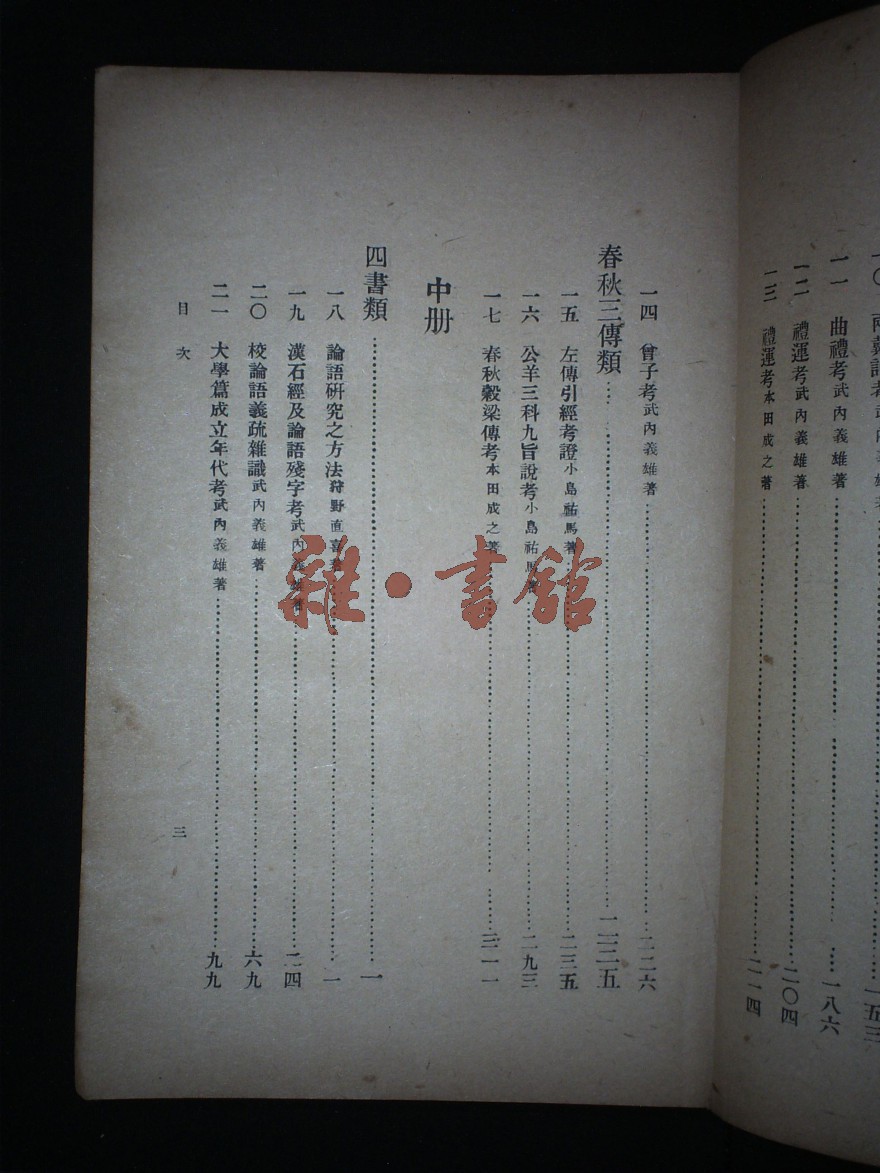 一一 曲禮考 武內義雄著 一八六
一二 禮運考 武內義雄著 二〇四
一三 禮運考 本田成之著 二一四
一四 曾子考 武內義雄著 二二六
春秋三傳類 二三五
一五 左傳引經考證 小島祐馬著 二三五
一六 公羊三科九旨說考 小島祐馬著 二九三
一七 春秋穀梁傳考 本田成之著 三一一
中册
四書類 一
一八 論語研究之方法 狩野直喜著 一
一九 漢石經及論語殘字考 武內義雄著 二四
二〇 校論語義疏雜識 武內義雄著 六九
二一 大學篇成立年代考 武內義雄著 九九
目次 三
雜·書館